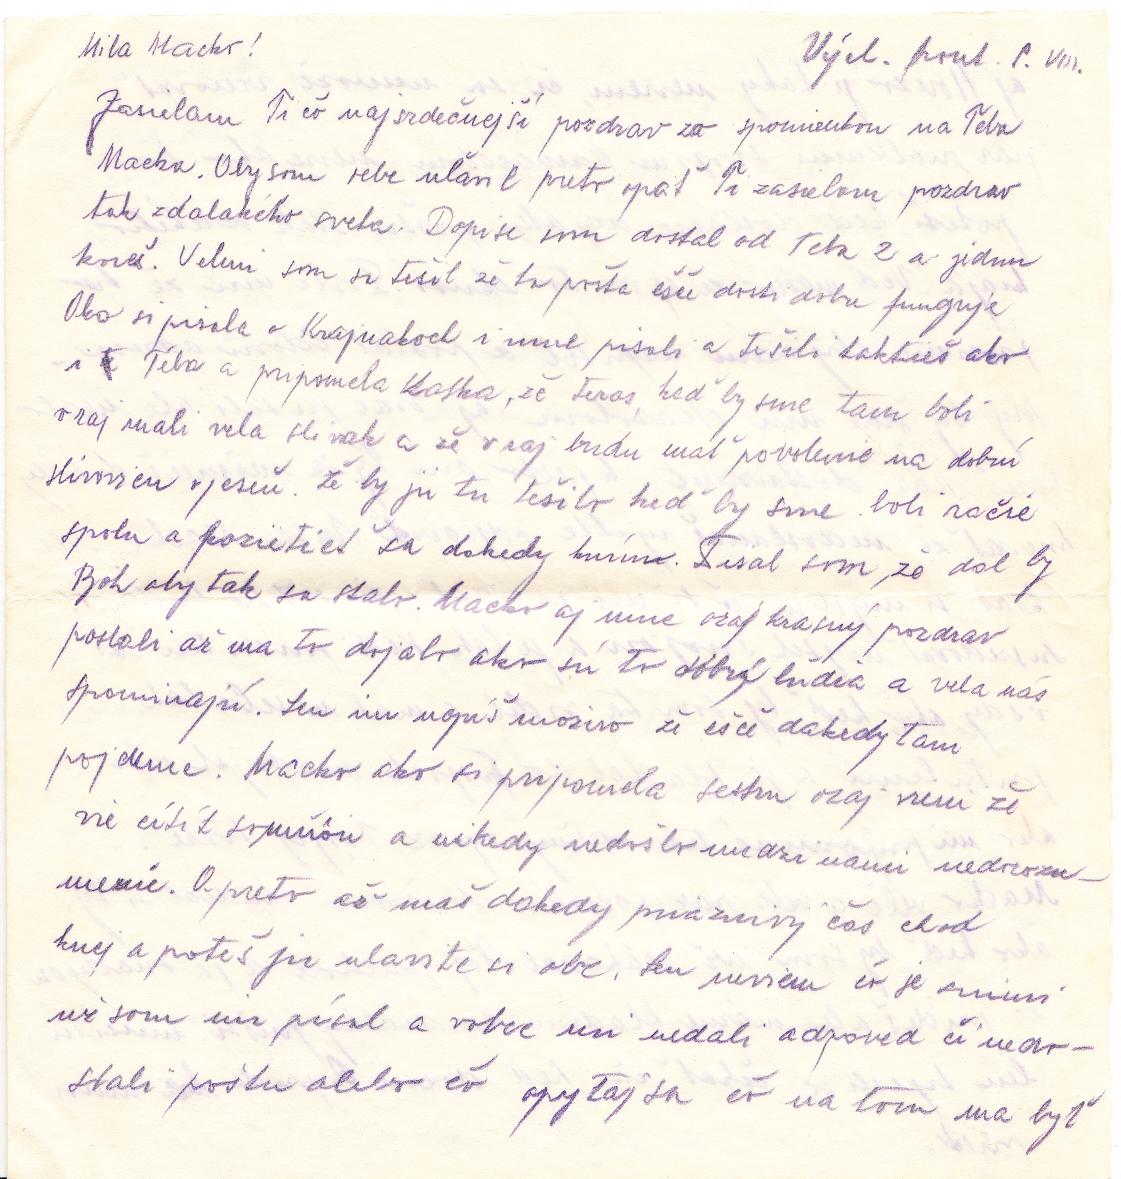 Milá Macko!
Vých. front. 1. VIII.
Zasielam Ti čo najsrdečnejší pozdrav zo spomienkou na Teba
Macka. Oby som sebe uľavil preto opäť Ti zasielam pozdrav
tak zdalakého sveta. Dopise som dostal od Teba 2 a jidnu
Velmi som sa tešil že ta pošta ešče dosti dobre funguje
Oko si pisala o Krajnakoch i mne pisali a tešili taktiež ako
i Teba a pripomela Kaška, že teras keď by sme tam boli
vraj mali vela slivak a že vraj budu mať povolenie na dobrú
slivovicu vjeseň. Že by ju tu tešilo keď by sme boli račie
spolu a pozietieť sa dakedy knim. Pisal som že dal by
Bôh aby tak sa stalo. Macko aj mne ozaj krasný pozdrav
poslali až ma to dojalo ako sú to dobrý ludia a vela nás
spominajú. Len im napiš mozivo že ešče dakedy tam
pojdeme. Macko ako si pripomela sestru ozaj viem že
vie cítiť somnôu a nikedy nedošlo medzi nami nedorozu-
menie. O preto až maš dakedy prazuvý čas chod
kuej a poteš ju ulavite si obe. Len neviem čo je snimi
už som im písal a vobec mi nedali adpoved či nedo-
stali poštu alebo čo opytaj sa čo na tom ma byť